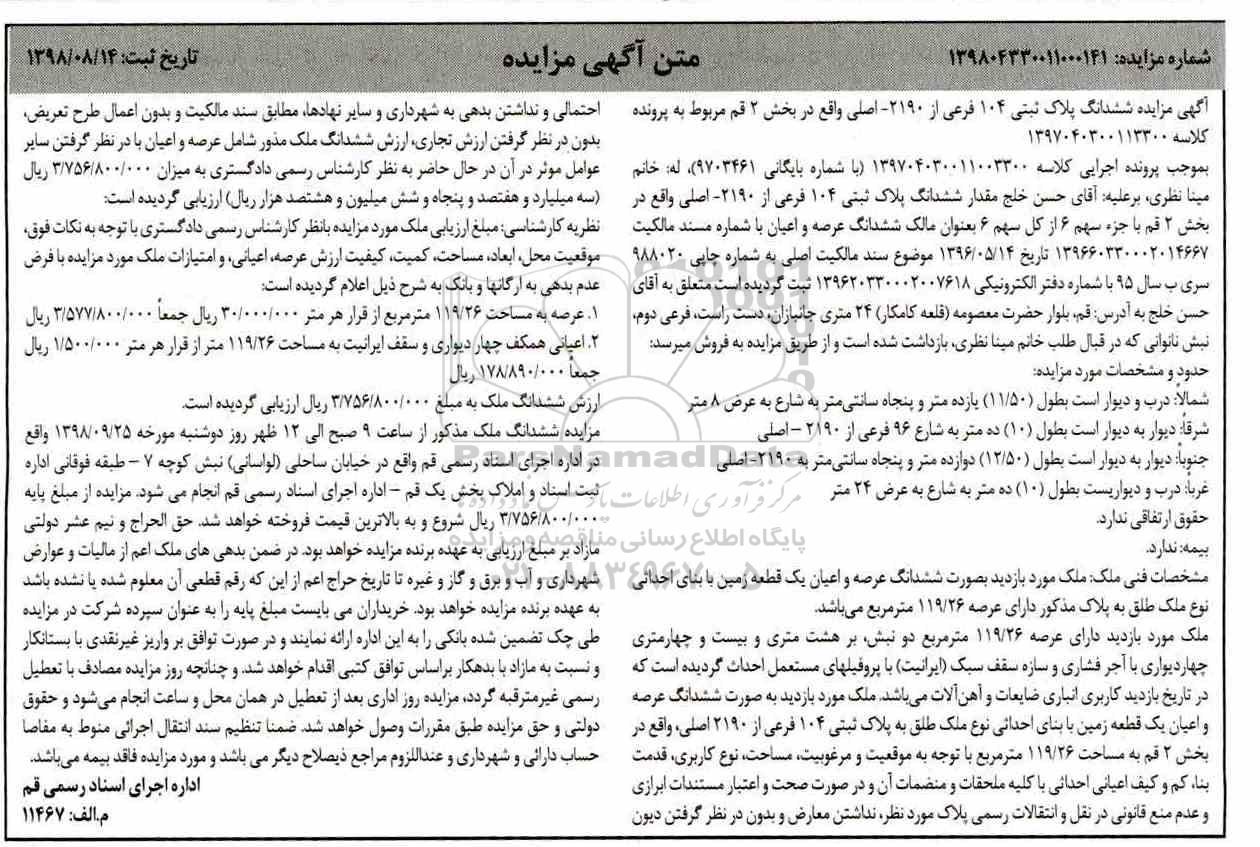 شماره مزایده: ۱۳۹۸۰۴۳۳۰۰۱۱۰۰۰۱۴۱
متن آگهی مزایده
تاریخ ثبت: ۱۳۹۸/۰۸/۱۴
آگهی مزایده ششدانگ پلاک ثبتی ۱۰۴ فرعی از ۲۱۹۰- اصلی واقع در بخش ۲ قم مربوط به پرونده
کلاسه ۱۳۹۷۰۴۰۳۰۰۱۱۳۳۰۰
بموجب پرونده اجرایی کلاسه ۱۳۹۷۰۴۰۳۰۰۱۱۰۰۳۳۰۰ (با شماره بایگانی ۹۷۰۳۴۶۱)، له: خانم
مینا نظری، برعلیه: آقای حسن خلج مقدار ششدانگ پلاک ثبتی ۱۰۴ فرعی از ۲۱۹۰- اصلی واقع در
بخش ۲ قم با جزء سهم ۶ از کل سهم ۶ بعنوان مالک ششدانگ عرصه و اعیان با شماره مستند مالکیت
۱۳۹۶۶۰۳۳۰۰۰۲۰۱۴۶۶۷ تاریخ ۱۳۹۶/۰۵/۱۴ موضوع سند مالکیت اصلی به شماره چاپی ۹۸۸۰۲۰
سری ب سال ۹۵ با شماره دفتر الکترونیکی ۱۳۹۶۲۰۳۳۰۰۰۲۰۰۷۶۱۸ ثبت گردیده است متعلق به آقای
حسن خلج به آدرس: قم، بلوار حضرت معصومه (قلعه کامکار) ۲۴ متری جانبازان، دست راست، فرعی دوم،
نبش نانوائی که در قبال طلب خانم مینا نظری، بازداشت شده است و از طریق مزایده به فروش میرسد:
حدود و مشخصات مورد مزایده:
شمالاً: درب و دیوار است بطول (۱۱/۵۰) یازده متر و پنجاه سانتی‌متر به شارع به عرض ۸ متر
شرقاً: دیوار به دیوار است بطول (۱۰) ده متر به شارع ۹۶ فرعی از ۲۱۹۰ – اصلی
جنوباً: دیوار به دیوار است بطول (۱۲/۵۰) دوازده متر و پنجاه سانتی‌متر به ۲۱۹۰-اصلی
غرباً: درب و دیواریست بطول (۱۰) ده متر به شارع به عرض ۲۴ متر
حقوق ارتفاقی ندارد.
بیمه: ندارد.
مشخصات فنی ملک: ملک مورد بازدید بصورت ششدانگ عرصه و اعیان یک قطعه زمین با بنای احداثی
نوع ملک طلق به پلاک مذکور دارای عرصه ۱۱۹/۲۶ مترمربع می‌باشد.
ملک مورد بازدید دارای عرصه ۱۱۹/۲۶ مترمربع دو نبش، بر هشت متری و بیست و چهارمتری
چهاردیواری با آجر فشاری و سازه سقف سبک (ایرانیت) با پروفیلهای مستعمل احداث گردیده است که
در تاریخ بازدید کاربری انباری ضایعات و آهن‌آلات می‌باشد. ملک مورد بازدید به صورت ششدانگ عرصه
و اعیان یک قطعه زمین با بنای احداثی نوع ملک طلق به پلاک ثبتی ۱۰۴ فرعی از ۲۱۹۰ اصلی، واقع در
بخش ۲ قم به مساحت ۱۱۹/۲۶ مترمربع با توجه به موقعیت و مرغوبیت، مساحت، نوع کاربری، قدمت
بنا، کم و کیف اعیانی احداثی با کلیه ملحقات و منضمات آن و در صورت صحت و اعتبار مستندات ابرازی
و عدم منع قانونی در نقل و انتقالات رسمی پلاک مورد نظر، نداشتن معارض و بدون در نظر گرفتن دیون
احتمالی و نداشتن بدهی به شهرداری و سایر نهادها، مطابق سند مالکیت و بدون اعمال طرح تعریض،
بدون در نظر گرفتن ارزش تجاری، ارزش ششدانگ ملک مذور شامل عرصه و اعیان با در نظر گرفتن سایر
عوامل موثر در آن در حال حاضر به نظر کارشناس رسمی دادگستری به میزان ۳/۷۵۶/۸۰۰/۰۰۰ ریال
(سه میلیارد و هفتصد و پنجاه و شش میلیون و هشتصد هزار ریال) ارزیابی گردیده است:
نظریه کارشناسی: مبلغ ارزیابی ملک مورد مزایده بانظر کارشناس رسمی دادگستری با توجه به نکات فوق،
موقعیت محل، ابعاد، مساحت، کمیت، کیفیت ارزش عرصه، اعیانی، و امتیازات ملک مورد مزایده با فرض
عدم بدهی به ارگانها و بانک به شرح ذیل اعلام گردیده است:
۱. عرصه به مساحت ۱۱۹/۲۶ مترمربع از قرار هر متر ۳۰/۰۰۰/۰۰۰ ریال جمعاً ۳/۵۷۷/۸۰۰/۰۰۰ ریال
۲. اعیانی همکف چهار دیواری و سقف ایرانیت به مساحت ۱۱۹/۲۶ متر از قرار هر متر ۱/۵۰۰/۰۰۰ ریال
جمعاً ۱۷۸/۸۹۰/۰۰۰ ریال
ارزش ششدانگ ملک به مبلغ ۳/۷۵۶/۸۰۰/۰۰۰ ریال ارزیابی گردیده است.
مزایده ششدانگ ملک مذکور از ساعت ۹ صبح الی ۱۲ ظهر روز دوشنبه مورخه ۱۳۹۸/۰۹/۲۵ واقع
در اداره اجرای اسناد رسمی قم واقع در خیابان ساحلی (لواسانی) نبش کوچه ۷ – طبقه فوقانی اداره
ثبت اسناد و املاک بخش یک قم – اداره اجرای اسناد رسمی قم انجام می شود. مزایده از مبلغ پایه
۳/۷۵۶/۸۰۰/۰۰۰ ریال شروع و به بالاترین قیمت فروخته خواهد شد. حق الحراج و نیم عشر دولتی
مازاد بر مبلغ ارزیابی به عهده برنده مزایده خواهد بود. در ضمن بدهی های ملک اعم از مالیات و عوارض
شهرداری و آب و برق و گاز و غیره تا تاریخ حراج اعم از این که رقم قطعی آن معلوم شده یا نشده باشد
به عهده برنده مزایده خواهد بود. خریداران می بایست مبلغ پایه را به عنوان سپرده شرکت در مزایده
طی چک تضمین شده بانکی را به این اداره ارائه نمایند و در صورت توافق بر واریز غیرنقدی با بستانکار
و نسبت به مازاد با بدهکار براساس توافق کتبی اقدام خواهد شد. و چنانچه روز مزایده مصادف با تعطیل
رسمی غیرمترقبه گردد، مزایده روز اداری بعد از تعطیل در همان محل و ساعت انجام می‌شود و حقوق
دولتی و حق مزایده طبق مقررات وصول خواهد شد. ضمنا تنظیم سند انتقال اجرائی منوط به مفاصا
حساب دارائی و شهرداری و عنداللزوم مراجع ذیصلاح دیگر می باشد و مورد مزایده فاقد بیمه می‌باشد.
اداره اجرای اسناد رسمی قم
م.الف: ۱۱۴۶۷
ParsNamadData
پایگاه اطلاع رسانی مناقصه و مزایده
۰۲۱-۸۸۳۴۹۶۷۰-۵